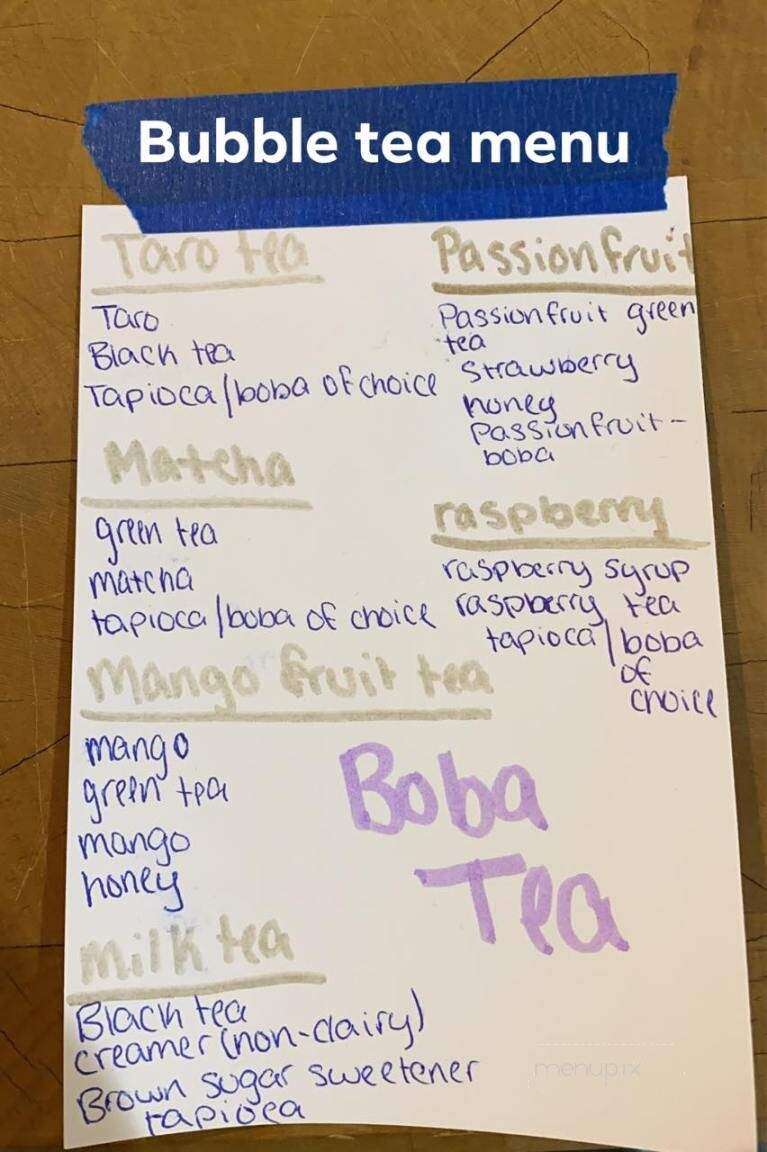 Bubble tea menu
Taro tea
Taro
Black tea
Tapioca/boba of choice
Matcha
green tea
matcha
tapioca/boba of choice
Mango fruit tea
mango
green tea
mango
honey
Milk tea
Black tea
creamer (non-dairy)
Brown sugar sweetener
tapioca
Passionfruit
Passionfruit green
tea
Strawberry
honey
Passionfruit-
boba
raspberry
raspberry syrup
raspberry tea
tapioca/boba
of
choice
Boba
Tea
menupix